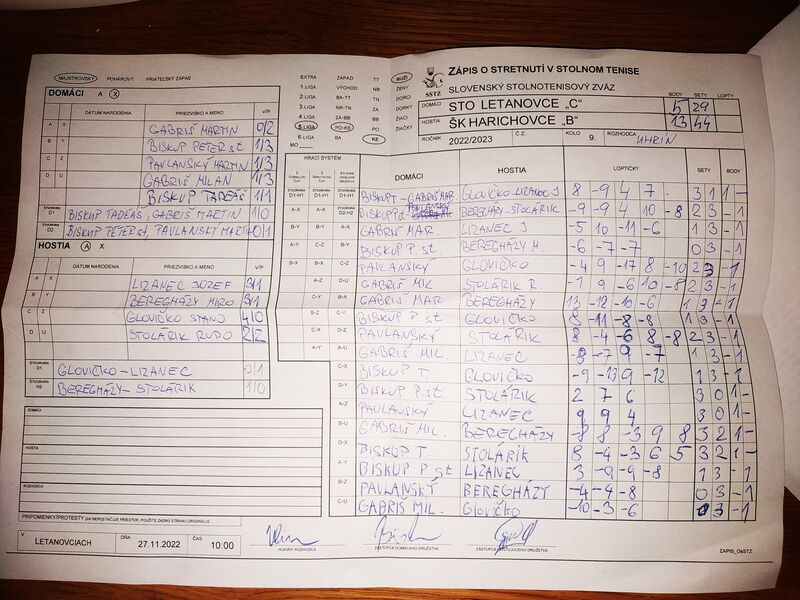 MAJSTROVSKÝ POHÁROVÝ PRIATEĽSKÝ ZÁPAS
DOMÁCI A X
DÁTUM NARODENIA PRIEZVISKO A MENO V/P
A X GABRIŠ MARTIN 0/2
B Y BISKUP PETER st. 1/3
C Z PAVLANSKÝ MARTIN 1/3
D U GABRIŠ MILAN 1/3
BISKUP TADEÁŠ 1/1
ŠTVORHRA D1 BISKUP TADEÁŠ, GABRIŠ MARTIN 1/0
ŠTVORHRA D2 BISKUP PETER st, PAVLANSKÝ MARTIN 0/1
HOSTIA A X
DÁTUM NARODENIA PRIEZVISKO A MENO V/P
A X LIZANEC JOZEF 3/1
B Y BEREGHÁZY MIRO 3/1
C Z GLOVIČKO STANO 4/0
D U STOLÁRIK RUDO 2/2
ŠTVORHRA D1 GLOVIČKO-LIZANEC 0/1
ŠTVORHRA H2 BEREGHÁZY-STOLÁRIK 1/0
DOMÁCI
HOSTIA
ROZHODCA
PRIPOMIENKY/PROTESTY (AK NEPOSTAČUJE PRIESTOR, POUŽITE ZADNÚ STRANU ORIGINÁLU)
V LETANOVCIACH DŇA 27.11.2022 ČAS 10:00
HLAVNÝ ROZHODCA
ZÁSTUPCA DOMÁCEHO DRUŽSTVA
ZÁSTUPCA HOSŤUJÚCEHO DRUŽSTVA
ZAPIS_OsSTZ
EXTRA ZÁPAD TT MUŽI
1.LIGA VÝCHOD NR ŽENY
2.LIGA BA-TT TN DORCI
3.LIGA NR-TN ZA DORKY
4.LIGA ZA-BB BB ŽIACI
5.LIGA PO-KE PO ŽIAČKY
6.LIGA BA KE
MO
SSTZ
ZÁPIS O STRETNUTÍ V STOLNOM TENISE
SLOVENSKÝ STOLNOTENISOVÝ ZVÄZ
BODY SETY LOPTY
DOMÁCI STO LETANOVCE „C" 5 29
HOSTIA ŠK HARICHOVCE „B" 13 44
ROČNÍK 2022/2023 Č.Z. KOLO 9. ROZHODCA UHRÍN
HRACÍ SYSTÉM
DOMÁCI HOSTIA LOPTIČKY SETY BODY
BISKUP T - GABRIŠ MAR GLOVIČKO-LIZANEC J 8 -9 4 7 3 1 1 -
BISKUP P.st PAVLANSKÝ BEREGHÁZY-STOLÁRIK -9 -9 4 10 -8 2 3 - 1
GABRIŠ MAR LIZANEC J. -5 10 -11 -6 1 3 - 1
BISKUP P. st. BEREGHÁZY M. -6 -7 -7 0 3 - 1
PAVLANSKÝ GLOVIČKO -4 9 -17 8 -10 2 3 - 1
GABRIŠ MIL STOLÁRIK R. -7 9 -6 10 -8 2 3 - 1
GABRIŠ MAR BEREGHÁZY 13 -12 -10 -6 1 3 - 1
BISKUP P. st GLOVIČKO 8 -11 -8 -8 1 3 - 1
PAVLANSKÝ STOLÁRIK 8 -4 -6 8 -8 2 3 - 1
GABRIŠ MIL. LIZANEC 9 -7 1 3 - 1
BISKUP T. GLOVIČKO -9 -13 9 -12 1 3 - 1
BISKUP P. st. STOLÁRIK 2 7 6 3 0 1 -
PAVLANSKÝ LIZANEC 9 9 4 3 0 1 -
GABRIŠ MIL. BEREGHÁZY -8 8 -3 9 8 3 2 1 -
BISKUP T. STOLÁRIK 8 -4 -3 6 5 3 2 1 -
BISKUP P. st LIZANEC 3 -9 -9 -8 1 3 - 1
PAVLANSKÝ BEREGHÁZY -4 -4 -8 0 3 - 1
GABRIŠ MIL. GLOVIČKO -10 -3 -6 0 3 - 1